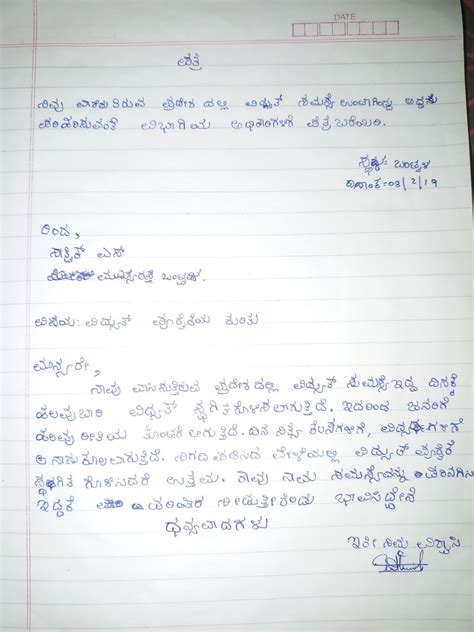 DATE
ಪತ್ರ
ನೀವು ವಾಸಿಸುತ್ತಿರುವ ಪ್ರದೇಶದಲ್ಲಿ ವಿದ್ಯುತ್ ಸಮಸ್ಯೆ ಉಂಟಾಗಿದ್ದು ಅದನ್ನು
ಪರಿಹರಿಸುವಂತೆ ವಿಭಾಗೀಯ ಅಧಿಕಾರಿಗಳಿಗೆ ಪತ್ರ ಬರೆಯಿರಿ.
ಸ್ಥಳ: ಬಂಟ್ವಾಳ
ದಿನಾಂಕ:-03/2/19
ರಿಂದ,
ಸಾತ್ವಿಕ್ ಎಸ್
ಬಂಟ್ವಾಳ.
ವಿಷಯ: ವಿದ್ಯುತ್ ಪೂರೈಕೆಯ ಕುರಿತು
ಮಾನ್ಯರೇ,
ನಾವು ವಾಸಿಸುತ್ತಿರುವ ಪ್ರದೇಶದಲ್ಲಿ ವಿದ್ಯುತ್ ಸಮಸ್ಯೆ ಇದ್ದು ದಿನಕ್ಕೆ
ಹಲವು ಬಾರಿ ವಿದ್ಯುತ್ ಸ್ಥಗಿತಗೊಳಿಸಲಾಗುತ್ತಿದೆ. ಇದರಿಂದ ಜನರಿಗೆ
ಹಲವು ರೀತಿಯ ತೊಂದರೆ ಆಗುತ್ತಿದೆ. ದಿನ ನಿತ್ಯ ಕೆಲಸಗಳಿಗೆ,
ಅನಾನುಕೂಲವಾಗುತ್ತಿದೆ. ನಿಗದಿಪಡಿಸಿದ ವೇಳೆಯಲ್ಲಿ ವಿದ್ಯುತ್ ಪೂರೈಕೆ
ಸ್ಥಗಿತಗೊಳಿಸಿದರೆ ಉತ್ತಮ. ನೀವು ನಮ್ಮ ಸಮಸ್ಯೆಯನ್ನು
ಇದಕ್ಕೆ ಪರಿಹಾರ ನೀಡುತ್ತೀರೆಂದು ಭಾವಿಸಿದ್ದೇನೆ
ಧನ್ಯವಾದಗಳು
ಇತೀ ನಿಮ್ಮ ವಿಶ್ವಾಸಿ